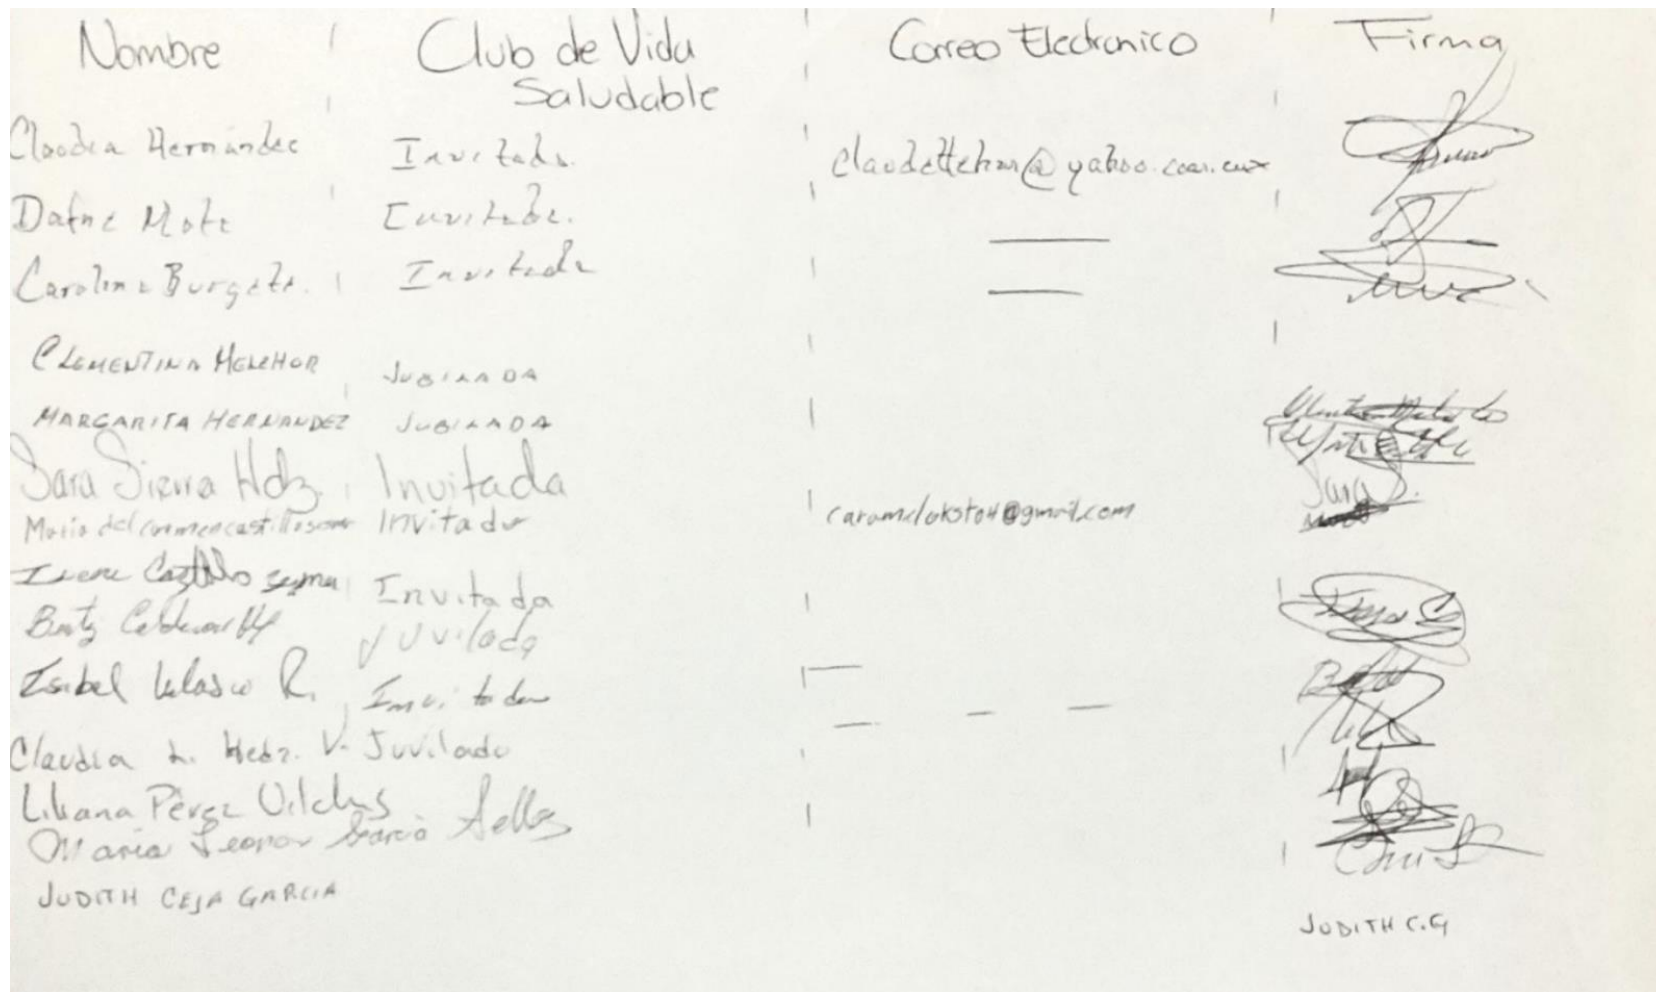 Nombre Club de Vida Correo Electronico Firma
Saludable
Claudia Hernández Invitada claudettehm@yahoo.com.mx
Dafne Mota Invitada
Carolina Burgete. Invitada
CLEMENTINA MELCHOR JUBILADA
MARGARITA HERNANDEZ JUBILADA
Sara Sierra Hdz. Invitada Sara S.
Maria del carmen castillo Invitada @gmail.com
Irene Castillo Invitada
Juvilada
Isabel Velasco R. Invitada
Claudia L. Hedz. V. Juvilado
Liliana Pérez Vilchis
Maria Leonor Garcia
JUDITH CEJA GARCIA
JUDITH C.G